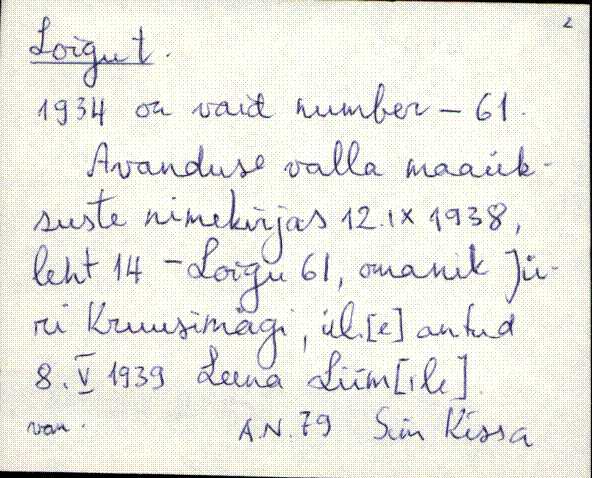 2
Loigu t.
1934 on vaid number – 61.
Avanduse valla maaük-
suste nimekirjas 12.IX 1938,
leht 14 – Loigu 61, omanik Jü-
ri Kruusimägi, ül.[e] antud
8. V 1939 Leena Liim[ile]
van. A.N. 79 Siin Kissa